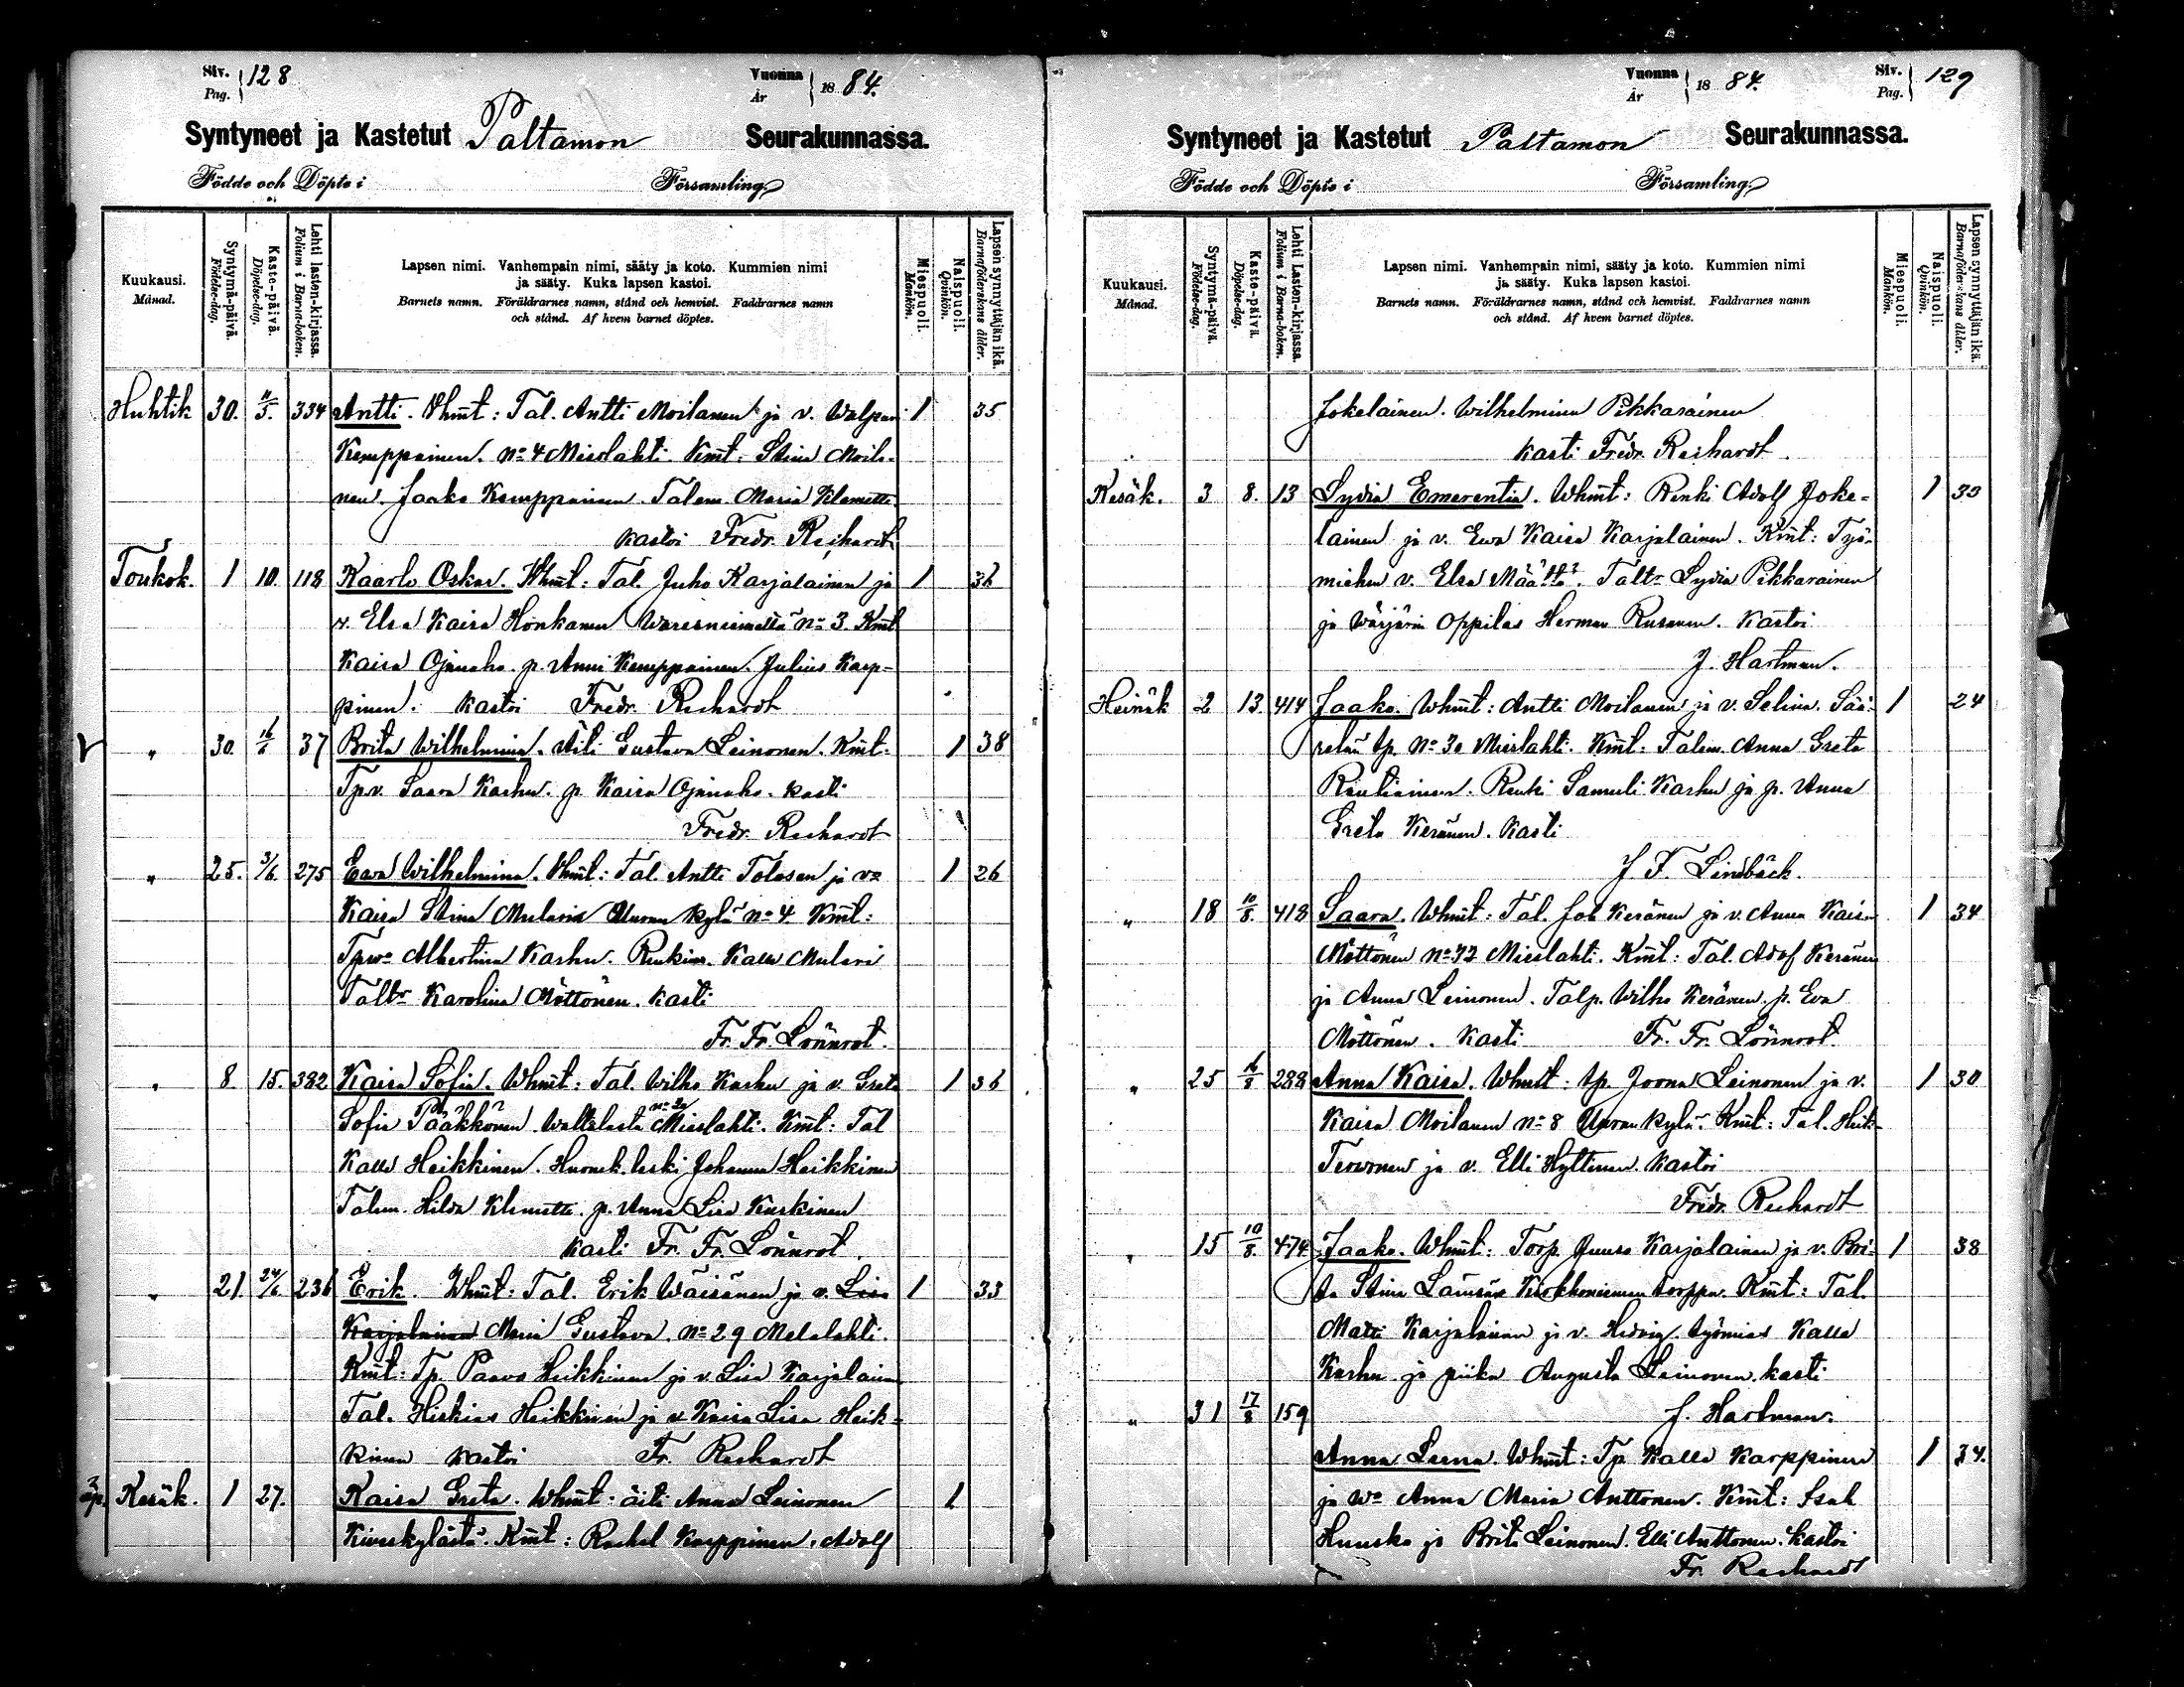 Siv. Pag. 128
Vuonna År 1884.
Syntyneet ja Kastetut Paltamon Seurakunnassa.
Födde och Döpte i Församling.
Kuukausi. Månad.
Syntymä-päivä. Födelse-dag.
Kaste-päivä. Döpelse-dag.
Lehti lasten-kirjassa. Folium i Barna-boken.
Lapsen nimi. Vanhempain nimi, sääty ja koto. Kummien nimi
ja sääty. Kuka lapsen kastoi.
Barnets namn. Föräldrarnes namn, stånd och hemvist. Faddrarnes namn
och stånd. Af hvem barnet döptes.
Miespuoli. Mankön.
Naispuoli. Qvinkön.
Lapsen synnyttäjän ikä. Barnaföderskans ålder.
Huhtik 30. 11/5. 334 Antti. Vhmt: Tal. Antti Moilanen ja v. Walpuri 1 35
Kemppainen. No 4 Mieslahti. Kmt. Stina Moila-
nen. Jaako Kemppainen. Talem. Maria Klemetti
kastoi Fredr. Rechardt
Toukok. 1 10. 118 Kaarlo Oskar. Whmt: Tal. Juho Karjalainen ja 1 36
v. Elsa Kaisa Honkanen Waresniemeltä No 3. Kmt
Kaisa Ojanaho. p. Anni Kemppainen. Julius Karp-
pinen. kastoi Fredr. Rechardt
" 30. 16/6 37 Brita Wilhelmina. Äiti Gustava Leinonen. Kmt: 1 38
Tpv. Saara Karhu. p. Kaisa Ojanaho. kasti
Fredr. Rechardt
" 25. 3/6. 275 Ewa Wilhelmina. Vhmt: Tal. Antti Tolosen ja vo 1 26
Kaisa Stina Mularin Uuran kylä No 4. Kmt:
Tpvo Albertina Karhu. Kalle Mulari
Taltr Karolina Möttönen. kasti
Fr. Fr. Lönnrot.
" 8 15. 382 Kaisa Sofia. Whmt: Tal. Wilho Karhu ja v. Greta 1 36
Sofia Pääkkönen. No 20 Mieslahti. Kmt: Tal
Kalle Heikkinen. Huonek. leski Johanna Heikkinen
Talem. Hilda Klemetti. p. Anna Lisa Kurkinen
kasti Fr. Fr. Lönnrot.
" 21. 24/6 236 Erik. Whmt: Tal. Erik Wäisänen ja v. Lisa 1 33
Karjalainen Maria Gustava. No 29 Melalahti.
Kmt: Tp. Paavo Heikkinen ja v. Lisa Karjalainen
Tal. Hiskias Heikkinen ja v. Kaisa Lisa Heik-
kinen kastoi Fr. Rechardt
Kesäk. 1 27. Kaisa Greta. Whmt: äiti Anna Leinonen 1
Kiveskylästä. Kmt: Rachel Karppinen. Adolf
Vuonna År 1884.
Siv. Pag. 129
Syntyneet ja Kastetut Paltamon Seurakunnassa.
Födde och Döpte i Församling.
Kuukausi. Månad.
Syntymä-päivä. Födelse-dag.
Kaste-päivä. Döpelse-dag.
Lehti Lasten-kirjassa. Folium i Barna-boken.
Lapsen nimi. Vanhempain nimi, sääty ja koto. Kummien nimi
ja sääty. Kuka lapsen kastoi.
Barnets namn. Föräldrarnes namn, stånd och hemvist. Faddrarnes namn
och stånd. Af hvem barnet döptes.
Miespuoli. Mankön.
Naispuoli. Qvinkön.
Lapsen synnyttäjän ikä. Barnaföderskans ålder.
Jokelainen. Wilhelmina Pikkarainen
kasti Fredr. Rechardt.
Kesäk. 3 8. 13 Lydia Emerentia. Whmt: Renki Adolf Joke- 1 30
lainen ja v. Ewa Kaisa Karjalainen. Kmt: Työ-
miehen v. Elsa Määttä. Taltr Lydia Pikkarainen
ja Wärjärin oppilas Herman Rusanen. Kastoi
J. Hartman.
Heinäk 2 13. 414 Jaako. Whmt: Antti Moilanen ja v. Selina Sää- 1 24
relän tp. No 30 Mieslahti. Kmt: Talem. Anna Greta
Rautiainen. Renki Samuli Karhu ja p. Anna
Greta Keränen. kasti
J. F. Lindbäck.
" 18 10/8. 418 Saara. Whmt: Tal. Job Keränen ja v. Anna Kaisa 1 34
Möttönen No 32 Mieslahti. Kmt: Tal. Adof Keränen
ja Anna Leinonen. Talp. Wilho Keränen. p. Eva
Möttönen. Kasti Fr. Fr. Lönnrot.
" 25 16/8 288 Anna Kaisa. Whmt: tp. Joona Leinonen ja v. 1 30
Kaisa Moilanen No 8 Uuran kylä. Kmt: Tal. Heik
Tervonen ja v. Elli Hyttinen. kastoi
Fredr. Rechardt
" 15 10/8. 474 Jaako. Whmt: Torp. Juuso Karjalainen ja v. Bri- 1 38
ta Stina Laurinen Kirkkoniemen torppa. Kmt: Tal.
Matti Karjalainen ja v. Hedvig. työmies Kalle
Karhu ja piika Augusta Leinonen. kasti
" 31 17/8 159 J. Hartman.
Anna Leena. Whmt: Tp. Kalle Karppinen 1 34.
ja Wo Anna Maria Anttonen. Kmt: Isak
Huusko ja Brita Leinonen. Elli Anttonen. kastoi
Fr. Rechardt